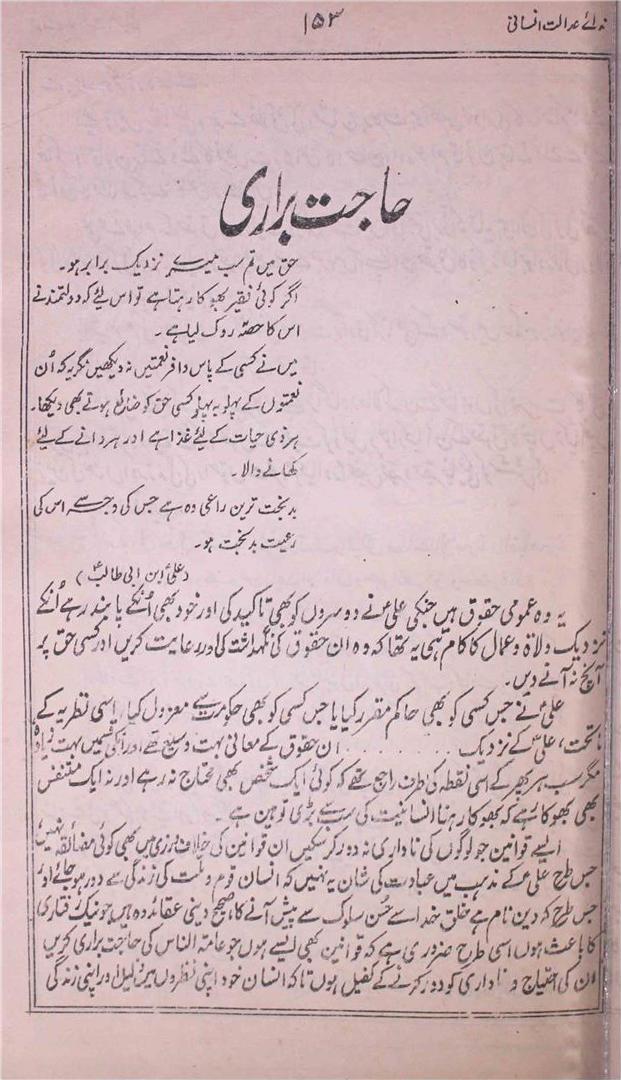 ندائے عدالت انسانی
۱۵۳
حاجت براری
حق میں تم سب میرے نزدیک برابر ہو۔
اگر کوئی فقیر بھوکا رہتا ہے تو اس لئے کہ دولتمند نے
اس کا حصّہ روک لیا ہے۔
میں نے کسی کے پاس وافر نعمتیں نہ دیکھیں مگر یہ کہ اُن
نعمتوں کے پہلو بہ پہلو کسی حق کو ضائع ہوتے بھی دیکھا۔
ہر ذی حیات کے لئے غذا ہے اور ہر دانے کے لئے
کھانے والا
بدبخت ترین راعی وہ ہے جس کی وجہ سے اس کی
رعیت بدبخت ہو۔
(علیؑ ابن ابی طالبؑ)
یہ وہ عمومی حقوق ہیں جنکی علیؑ نے دوسروں کو بھی تاکید کی اور خود بھی اُنکے پابند رہے اُنکے
نزدیک ولاۃ و عمال کا کام ہی یہ تھا کہ وہ ان حقوق کی نگہداشت کی اور رعایت کریں اور کسی حق پر
آنچ نہ آنے دیں۔
علیؑ نے جس کسی کو بھی حاکم مقرر کیا یا جس کسی کو بھی حکومت سے معزول کیا، اسی نظریہ کے
ماتحت، علیؑ کے نزدیک . . . . . . . . . ان حقوق کے معانی بہت وسیع تھے اور انکی قسمیں بہت زیادہ
مگر سب ہر پھر کے اسی نقطہ کی طرف راجع تھے کہ کوئی ایک شخص بھی محتاج نہ رہے اور نہ ایک متنفس
بھی بھوکا رہے کہ بھوکا رہنا انسانیت کی سب سے بڑی توہین ہے۔
ایسے قوانین جو لوگوں کی ناداری نہ دور کر سکیں ان قوانین کی خلاف ورزی میں بھی کوئی مضائقہ نہیں
جس طرح علیؑ کے مذہب میں عبادت کی شان یہ نہیں کہ انسان قوم و ملت کی زندگی سے دور ہو جائے اور
جس طرح کہ دین نام ہے خلق خدا سے حُسن سلوک سے پیش آنے کا، صحیح دینی عقائد وہ ہیں جو نیک رفتاری
کا باعث ہوں اسی طرح ضروری ہے کہ قوانین بھی ایسے ہوں جو عامۃ الناس کی حاجت براری کریں
ان کی احتیاج و ناداری کو دور کرنے کے کفیل ہوں تاکہ انسان خود اپنی نظروں میں ذلیل اور اپنی زندگی